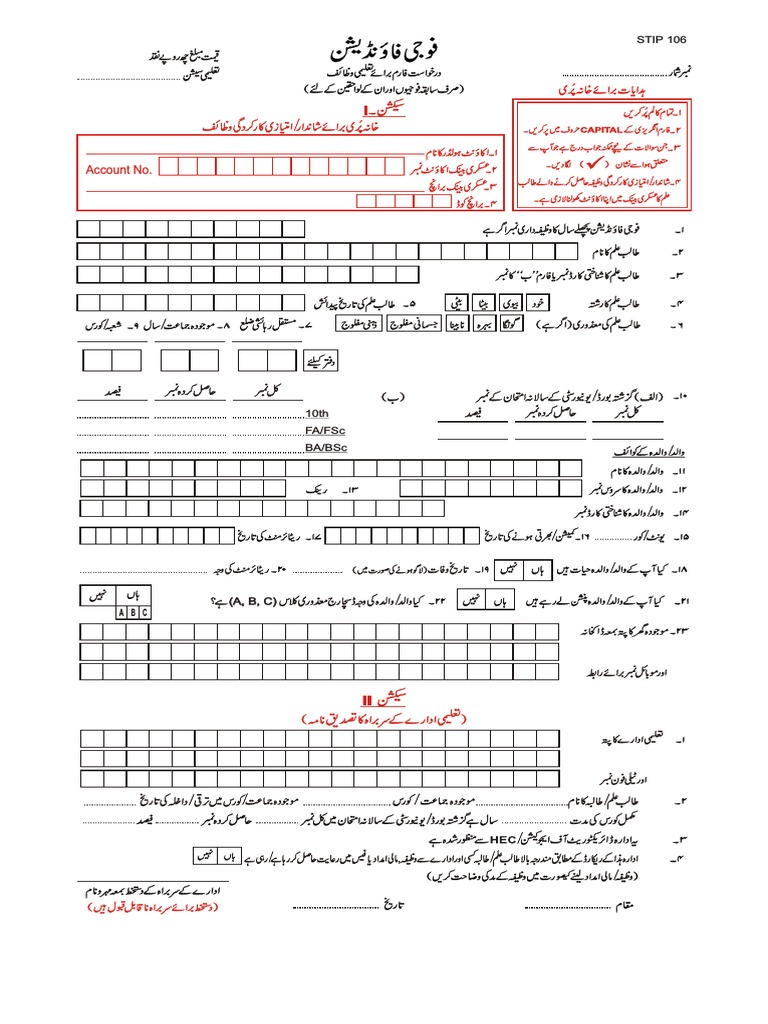 STIP 106
فوجی فاؤنڈیشن
قیمت مبلغ چھ روپے نقد
درخواست فارم برائے تعلیمی وظائف
نمبر شمار ........................
تعلیمی سیشن ........................
(صرف سابقہ فوجیوں اور ان کے لواحقین کے لئے)
ہدایات برائے خانہ پُری
۱۔ تمام کالم پُر کریں
۲۔ فارم انگریزی کے CAPITAL حروف میں پر کریں۔
۳۔ جن سوالات کے نیچے ممکنہ جواب درج ہے آپ سے
متعلق ہوا سے نشان (✓) لگا دیں۔
۴۔ شاندار/امتیازی کارکردگی وظیفہ حاصل کرنے والے طالب
علم کا عسکری بینک میں اپنا اکاؤنٹ کھولنا لازمی ہے۔
سیکشن ۔I
خانہ پُری برائے شاندار/امتیازی کارکردگی وظائف
۱۔ اکاؤنٹ ہولڈر کا نام
۲۔ عسکری بینک اکاؤنٹ نمبر Account No.
۳۔ عسکری بینک برانچ
۴۔ برانچ کوڈ
۱۔ فوجی فاؤنڈیشن پچھلے سال کا وظیفہ داری نمبر اگر ہے
۲۔ طالب علم کا نام
۳۔ طالب علم کا شناختی کارڈ نمبر یا فارم "ب" کا نمبر
۴۔ طالب علم کا رشتہ خود بیوی بیٹا بیٹی ۵۔ طالب علم کی تاریخ پیدائش
۶۔ طالب علم کی معذوری (اگر ہے) گونگا بہرہ نابینا جسمانی مفلوج ذہنی مفلوج ۷۔ مستقل رہائشی ضلع ۸۔ موجودہ جماعت/سال ۹۔ شعبہ/کورس
دفتر کیلئے
۱۰۔ (الف) گزشتہ بورڈ/یونیورسٹی کے سالانہ امتحان کے نمبر (ب) کل نمبر حاصل کردہ نمبر فیصد
کل نمبر حاصل کردہ نمبر فیصد
10th
FA/FSc
BA/BSc
والد/والدہ کے کوائف
۱۱۔ والد/والدہ کا نام
۱۲۔ والد/والدہ کا سروس نمبر ۱۳۔ رینک
۱۴۔ والد/والدہ کا شناختی کارڈ نمبر
۱۵۔ یونٹ/کور ............... ۱۶۔ کمیشن/بھرتی ہونے کی تاریخ ۱۷۔ ریٹائرمنٹ کی تاریخ
۱۸۔ کیا آپ کے والد/والدہ حیات ہیں ہاں نہیں ۱۹۔ تاریخ وفات (لاگو ہونے کی صورت میں) ............... ۲۰۔ ریٹائرمنٹ کی وجہ ...............
۲۱۔ کیا آپ کے والد/والدہ پنشن لے رہے ہیں ہاں نہیں ۲۲۔ کیا والد/والدہ کی وجہ ڈسچارج معذوری کلاس (A, B, C) ہے؟ ہاں نہیں
A B C
۲۳۔ موجودہ گھر کا پتہ بمعہ ڈاکخانہ
اور موبائل نمبر برائے رابطہ
سیکشن II
(تعلیمی ادارے کے سربراہ کا تصدیق نامہ)
۱۔ تعلیمی ادارے کا پتہ
اور ٹیلی فون نمبر
۲۔ طالب علم/طالبہ کا نام ............... موجودہ جماعت/کورس ............... موجودہ جماعت/کورس میں ترقی/داخلہ کی تاریخ ...............
مکمل کورس کی مدت ............... سال ہے گزشتہ بورڈ/یونیورسٹی کے سالانہ امتحان میں کل نمبر ............... حاصل کردہ نمبر ............... فیصد ...............
۳۔ یہ ادارہ ڈائریکٹوریٹ آف ایجوکیشن/HEC سے منظور شدہ ہے
۴۔ ادارہ ہذا کے ریکارڈ کے مطابق مندرجہ بالا طالب علم/طالبہ کسی اور ادارے سے وظیفہ، مالی امداد یا فیس میں رعایت حاصل کر رہا ہے/رہی ہے ہاں نہیں
(وظیفہ/مالی امداد لینے کی صورت میں وظیفہ کے مد کی وضاحت کریں)
ادارے کے سربراہ کے دستخط بمعہ مہر و نام
(دستخط برائے سربراہ ناقابل قبول ہیں)
مقام ............... تاریخ ...............